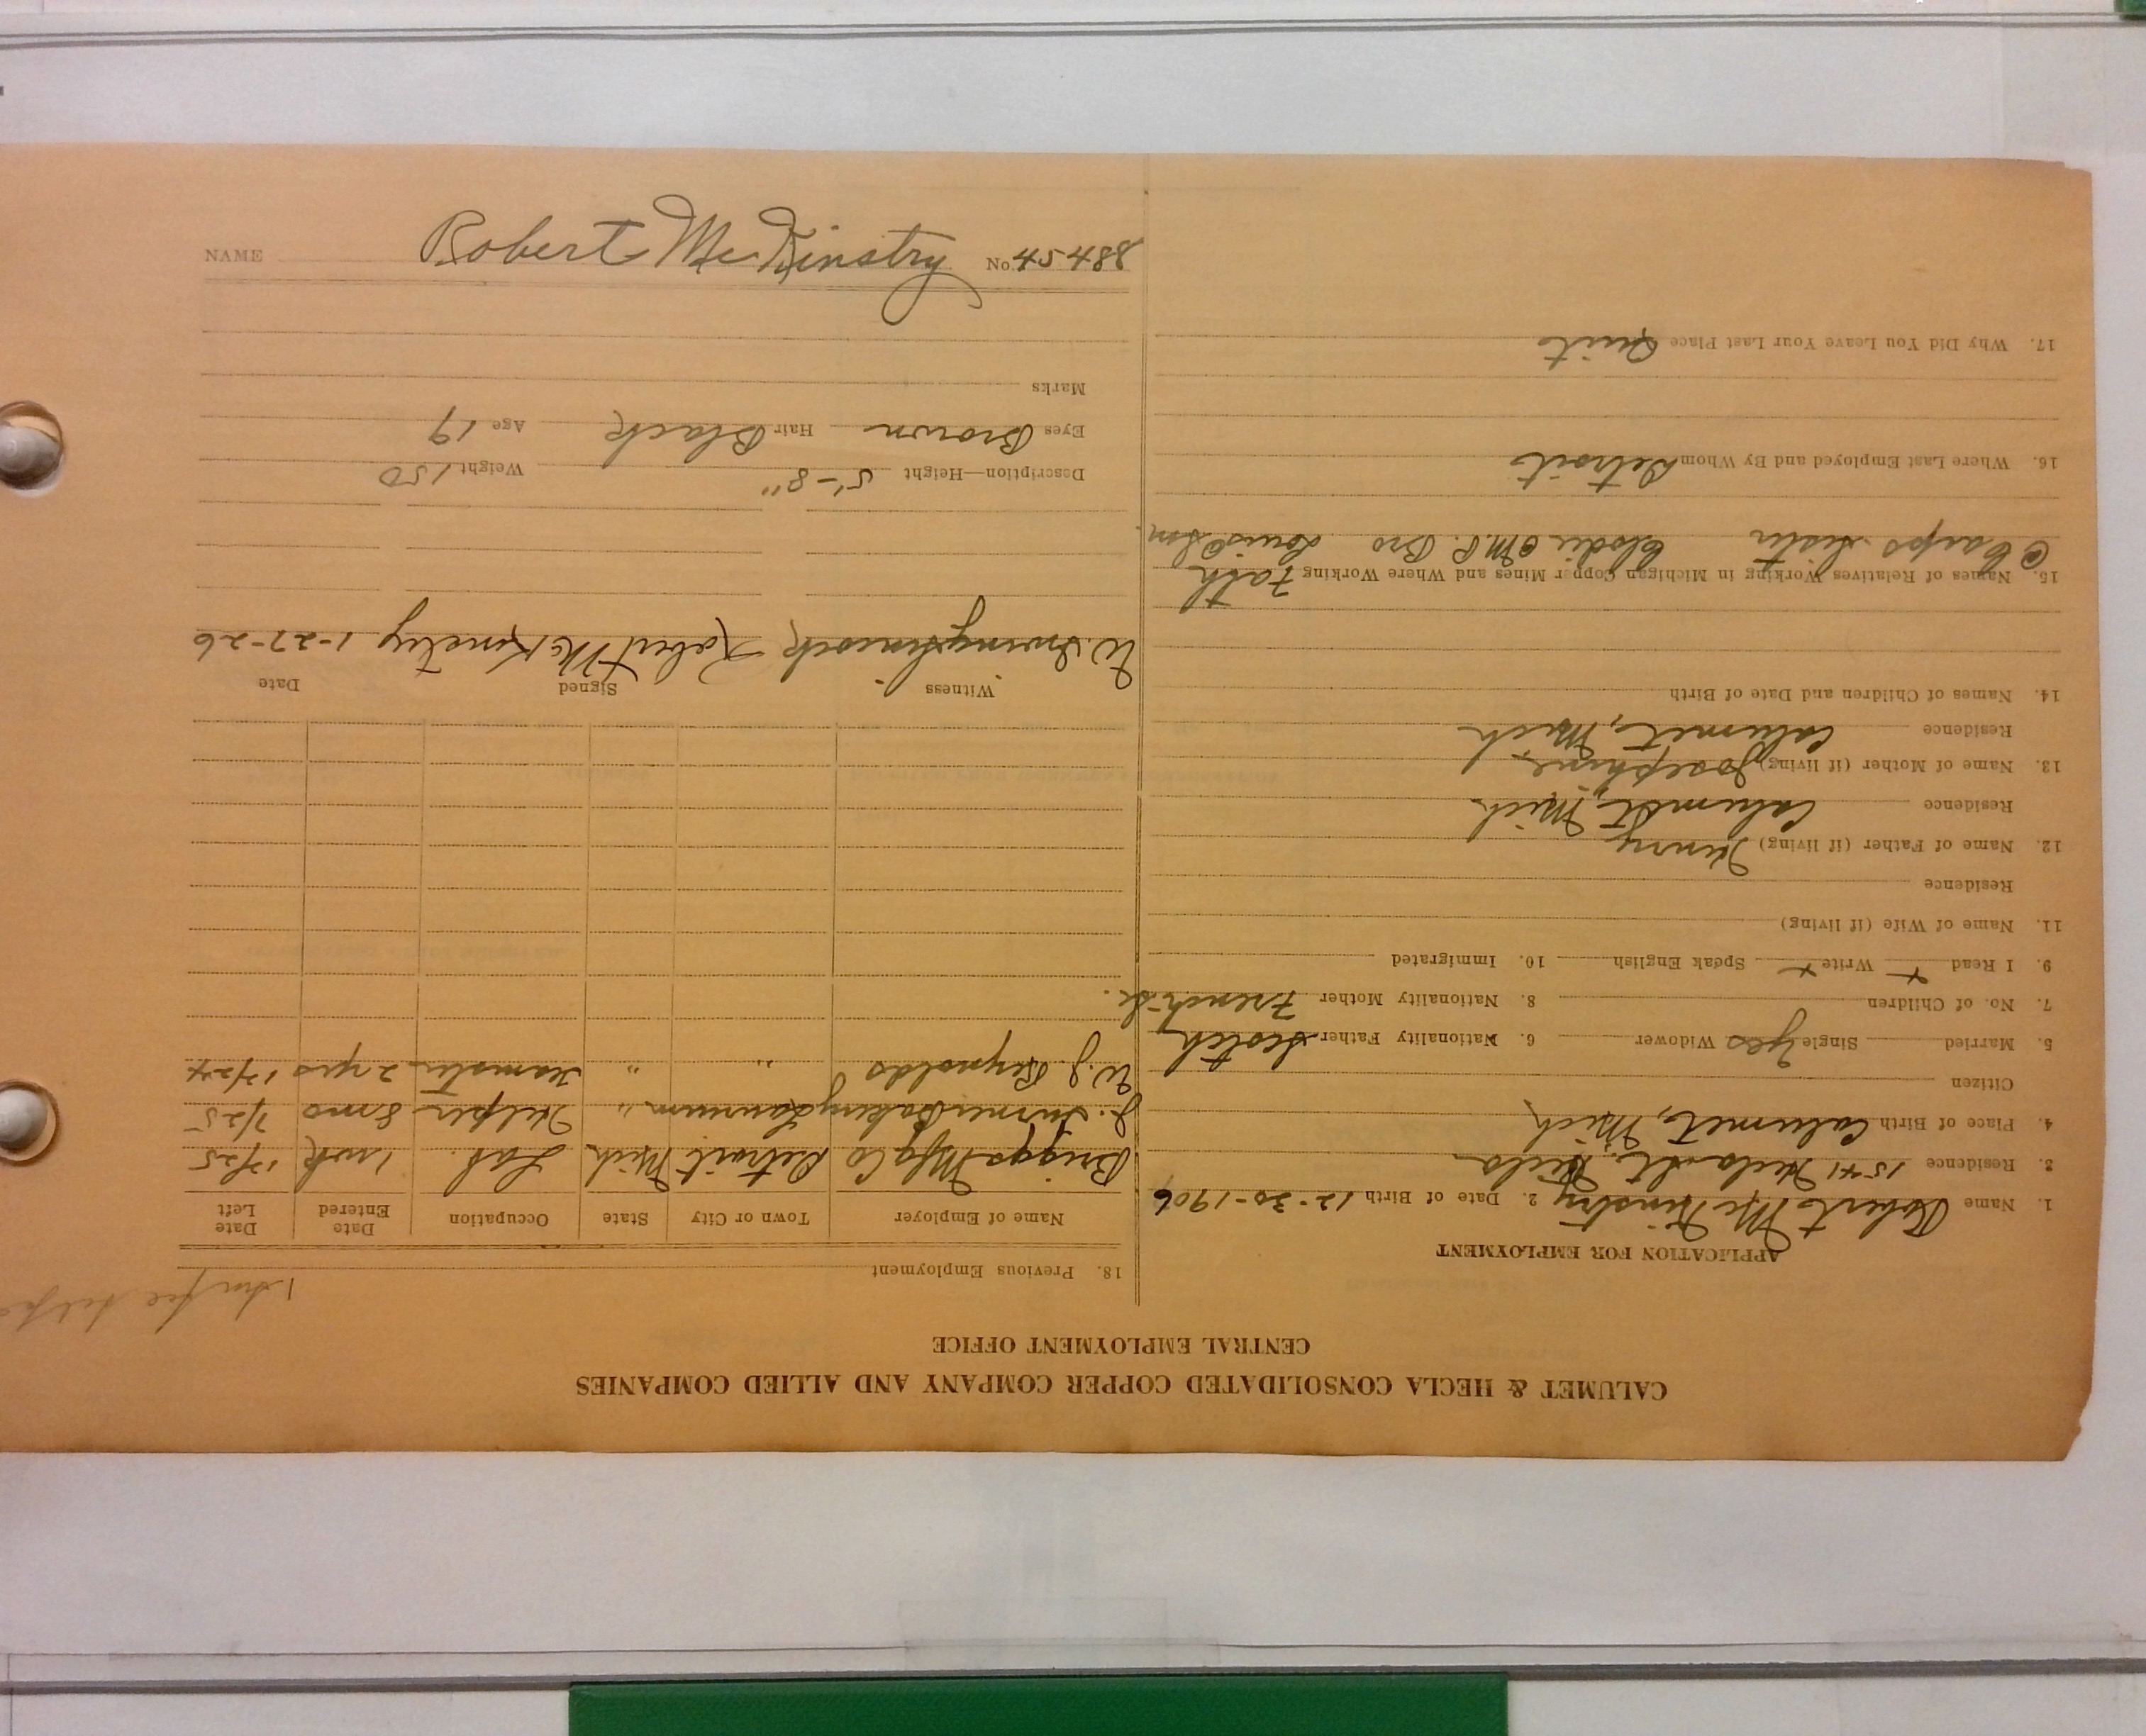 CALUMET & HECLA CONSOLIDATED COPPER COMPANY AND ALLIED COMPANIES
CENTRAL EMPLOYMENT OFFICE
APPLICATION FOR EMPLOYMENT
1. Name Robert McKinstry 2. Date of Birth 12-30-1906
3. Residence 1541 Hecla St. Hecla
4. Place of Birth Calumet, Mich
Citizen
5. Married Single yes Widower 6. Nationality Father Scotch
7. No. of Children 8. Nationality Mother French
9. I Read x Write x Speak English 10. Immigrated
11. Name of Wife (if living)
Residence
12. Name of Father (if living) Henry
Residence Calumet, Mich
13. Name of Mother (if living) Josephine
Residence Calumet, Mich
14. Names of Children and Date of Birth
15. Names of Relatives Working in Michigan Copper Mines and Where Working Fath
@ Carps Sister Elodie @ M.P. Bro Louis @
16. Where Last Employed and By Whom Detroit
17. Why Did You Leave Your Last Place Quit
18. Previous Employment
Name of Employer Town or City State Occupation Date Entered Date Left
Briggs Mfg Co Detroit Mich Lab. 1 wk 12/25
J. Turner Bakery Laurium " Helper 8 mo 7/25
W. J. Reynolds " " Teamster 2 yrs 12/24
Witness Signed Date
W. Robert McKinstry 1-27-26
Description—Height 5'-8" Weight 150
Eyes Brown Hair Black Age 19
Marks
NAME Robert McKinstry No 45488